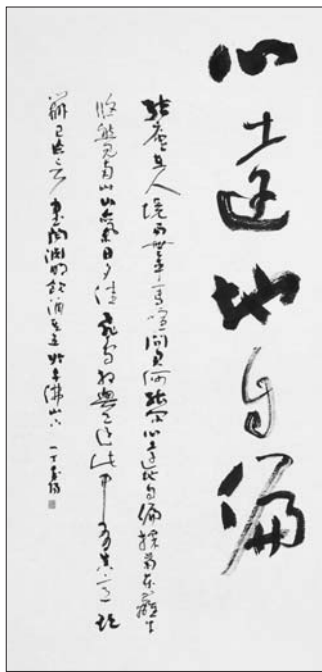 心遠地自偏
結廬在人境而無車馬喧問君何能爾心遠地自偏採菊東籬下
悠然見南山山氣日夕佳飛鳥相與還此中有真意欲
辯已忘言 書陶淵明飲酒其五於佛山